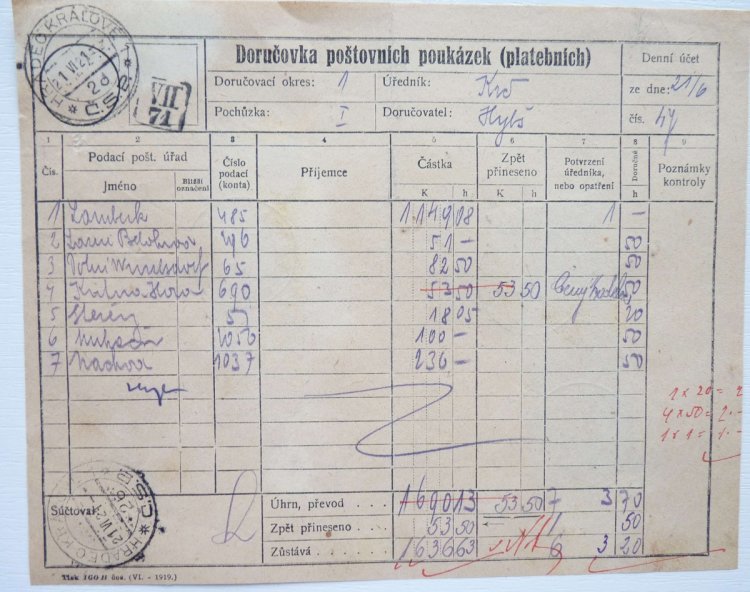 HRADEC KRÁLOVÉ 1
21 VI 21
2d
Č.S.P.
VII
71
Doručovka poštovních poukázek (platebních)
Denní účet
Doručovací okres: 1 Úředník:
ze dne: 21/6
Pochůzka: I Doručovatel: Hybš
čís. 47
1 2 3 4 5 6 7 8 9
Čís. Podací pošt. úřad Číslo podací (konta) Příjemce Částka Zpět přineseno Potvrzení úředníka, nebo opatření Doručné Poznámky kontroly
Jméno Bližší označení K h K h h
1 Žamberk 485 1149 08 1 –
2 Bělohrad 296 51 – 50
3 Dolní 65 82 50 50
4 Kutná Hora 690 53 50 53 50 50
5 18 05 20
6 100 – 50
7 Náchod 1037 236 – 50
1 x 20 =
4 x 50 = 2.–
1 x 1 = 1.–
Súčtoval:
Úhrn, převod . . . . 1690 13 53 50 7 3 70
Zpět přineseno . . . . 53 50 1 50
Zůstává . . . . 1636 63 6 3 20
HRADEC KRÁ
21 VI 21
Č.S.P.
Tisk 1GO B čes. (VI. - 1919.)